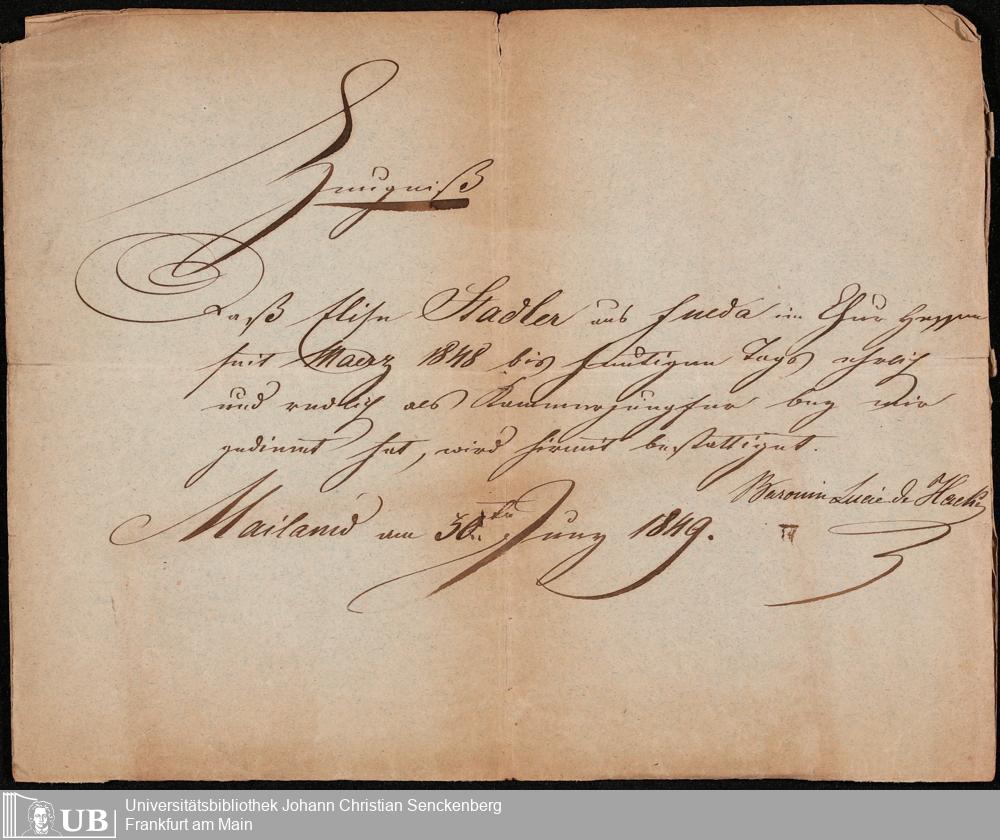 Zeugniß
Daß Elise Stadler aus Fulda im Chur Hessen
seit Maerz 1848 bis heutigen Tags ehrlich
und redlich als Kammerjungfer bey mir
gedient hat, wird hirmit bestättiget.
Baronin Lucie de
Mailand am 30ten Juny 1849.
Universitätsbibliothek Johann Christian Senckenberg
Frankfurt am Main
UB